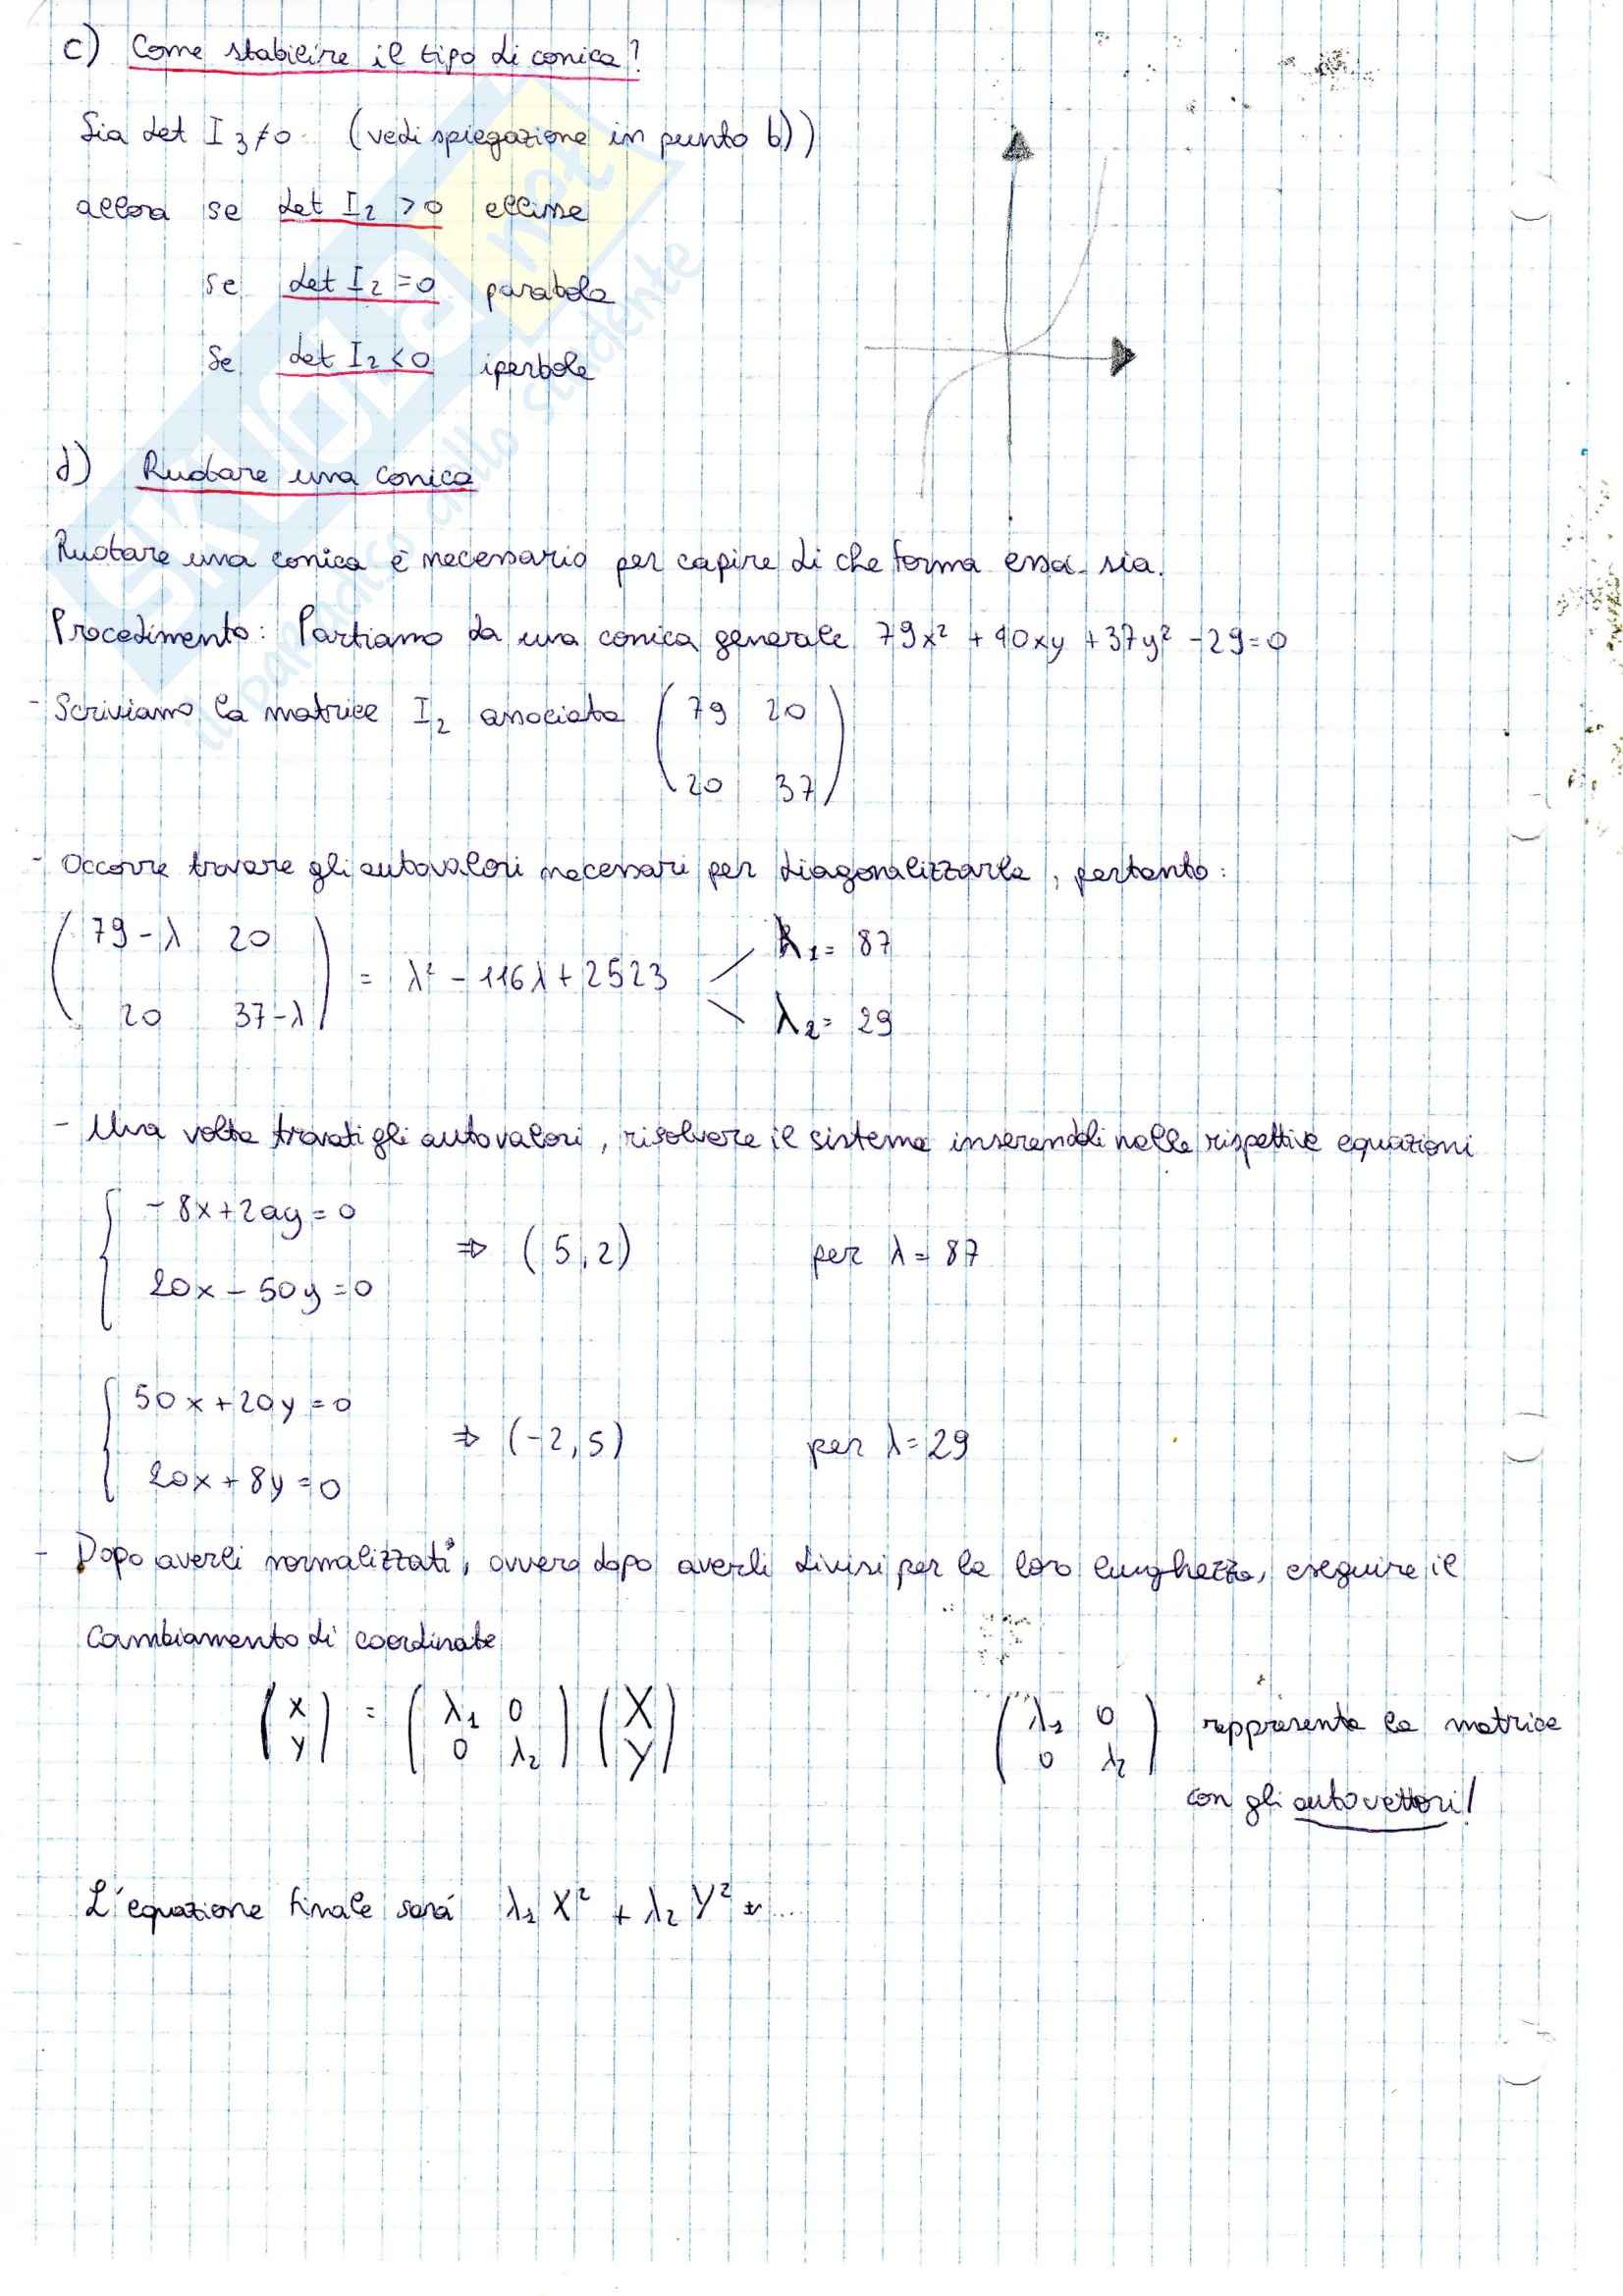 c) Come stabilire il tipo di conica?
Sia det I3≠0 (vedi spiegazione in punto b))
allora se det I2 >0 ellisse
se det I2 =0 parabola
Se det I2 <0 iperbole
d) Ruotare una conica
Ruotare una conica è necessario per capire di che forma essa sia.
Procedimento: Partiamo da una conica generale 79x² + 40xy + 37y² - 29=0
- Scriviamo la matrice I2 associata ( 79 20
20 37 )
- Occorre trovare gli autovalori necessari per diagonalizzarla, pertanto:
( 79-λ 20
20 37-λ ) = λ² - 116λ + 2523
λ1= 87
λ2= 29
- Una volta trovati gli autovalori, risolvere il sistema inserendoli nelle rispettive equazioni
{ -8x+20y=0
20x-50y=0
⇒ (5,2) per λ=87
{ 50x+20y=0
20x+8y=0
⇒ (-2,5) per λ=29
- Dopo averli normalizzati, ovvero dopo averli divisi per la loro lunghezza, eseguire il
cambiamento di coordinate
( x
y ) = ( λ1 0
0 λ2 ) ( X
Y )
( λ1 0
0 λ2 ) rappresenta la matrice
con gli autovettori!
L'equazione finale sará λ1 X² + λ2 Y² + ...
SKUOLA.net
il paradiso dello studente